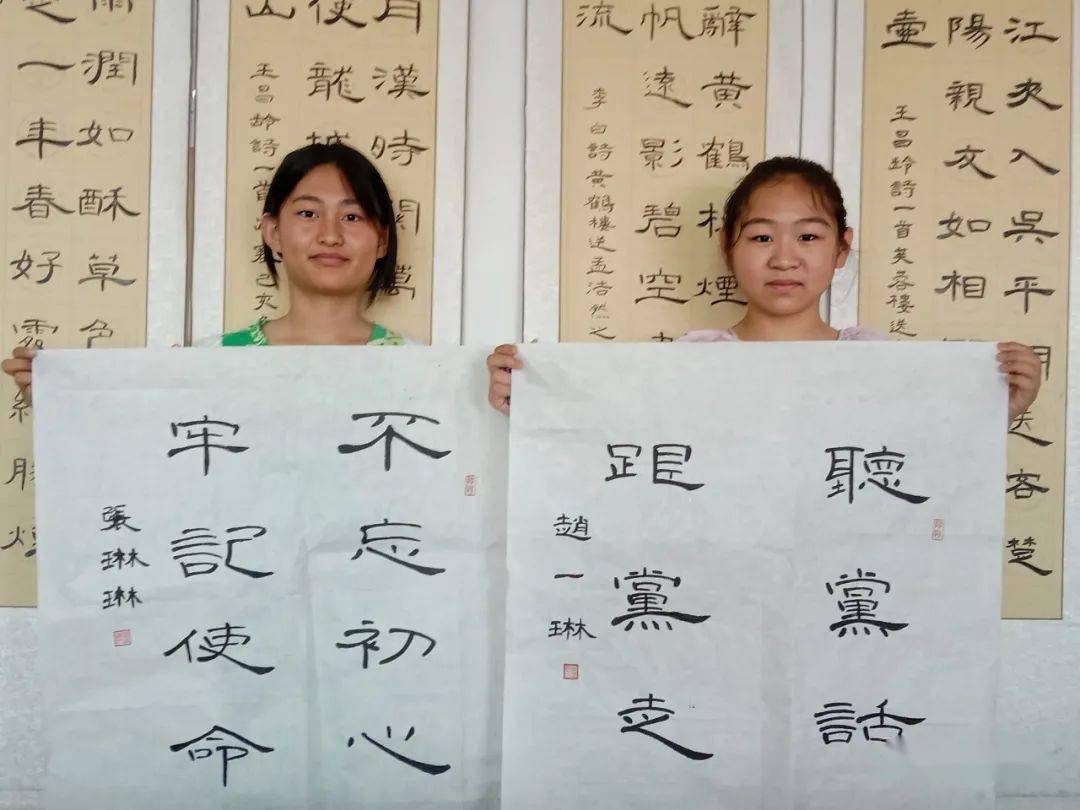 江夜入吳平明送客楚
陽親友如相
壺
王昌齡詩一首芙蓉樓送
辭黃鶴樓煙
帆遠影碧空
流
李白詩黃鶴樓送孟浩然之
月漢時關萬
使龍城
山
王昌齡詩一首
雨潤如酥草色
一年春好處絕勝煙
聽黨話
跟黨走
趙一琳
不忘初心
牢記使命
張琳琳